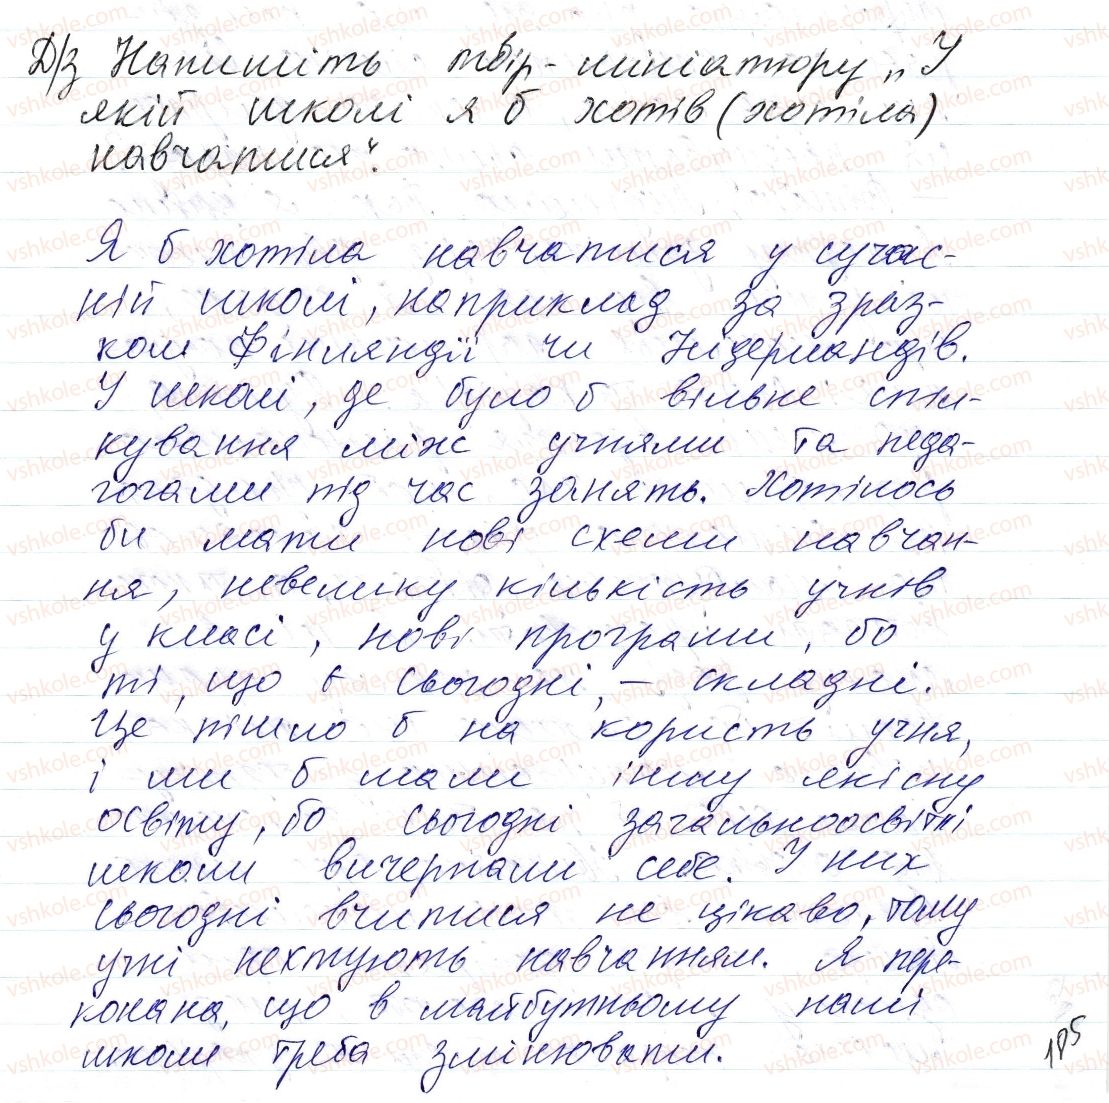 Д/з Напишіть твір-мініатюру „У
якій школі я б хотів (хотіла)
навчатися“.
Я б хотіла навчатися у сучас-
ній школі, наприклад за зраз-
ком Фінляндії чи Нідерландів.
У школі, де було б вільне спіл-
кування між учнями та педа-
гогами під час занять. Хотілось
би мати нові схеми навчан-
ня, невелику кількість учнів
у класі, нові програми, бо
ті, що є сьогодні, – складні.
Це пішло б на користь учня,
і ми б мали іншу якісну
освіту, бо сьогодні загальноосвітні
школи вичерпали себе. У них
сьогодні вчитися не цікаво, тому
учні нехтують навчанням. Я пере-
конана, що в майбутньому наші
школи треба змінювати.
185